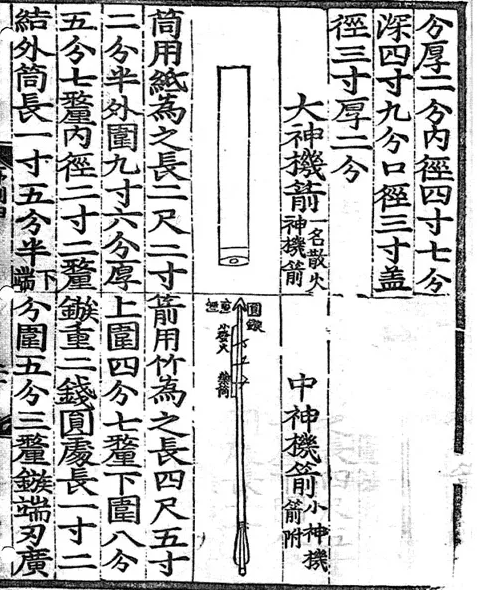 分厚二分內徑四寸七分
深四寸九分口徑三寸盖
徑三寸厚二分
大神機箭
一名散火
神機箭
筒用紙為之長二尺二寸
二分半外圍九寸六分厚
五分七釐內徑二寸二釐
結外筒長一寸五分半下端
中神機箭
小神機
箭附
圓鏃
發火
藥筒
箭用竹為之長四尺五寸
上圍四分七釐下圍八分
鏃重二錢圓處長一寸二
分圍五分三釐鏃端刃廣